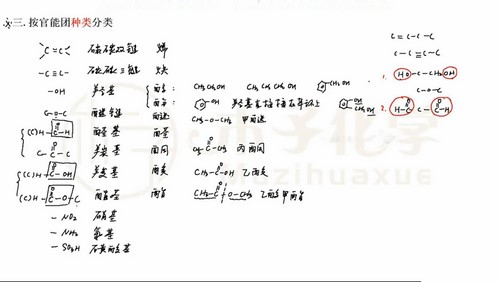 三. 按官能团种类分类
C=C 碳碳双键 烯
-C≡C- 碳碳三键 炔
-OH 羟基 醇: CH₃CH₂OH CH₃CH₂CH₂OH
酚: 羟基直接插在苯环上
C-O-C 醚键 醚 CH₃-O-CH₃ 甲醚
(C)H-C-H 醛基 醛
C-C-C 羰基 酮 CH₃-C-CH₃ 丙酮
(C)H-C-OH 羧基 酸 CH₃-C-OH 乙酸
(C)H-C-O-C 酯基 酯 CH₃-C-O-CH₃ 乙酸甲酯
-NO₂ 硝基
-NH₂ 氨基
-SO₃H 磺酸基
C=C-C-C
C-C=C-C
1. HO-C-CH₂OH
C-O-C
2. H-C C-C-H
zihuaxue